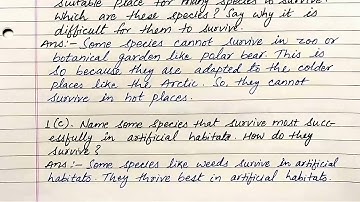 suitable place for many species to survive.
Which are these species? Say why it is
difficult for them to survive.
Ans:- Some species cannot survive in zoo or
botanical garden like polar bear. This is
so because they are adapted to the colder
places like the Arctic. So, they cannot
survive in hot places.
1(c). Name some species that survive most succ-
essfully in artificial habitats. How do they
survive?
Ans:- Some species like weeds survive in artificial
habitats. They thrive best in artificial habitats.